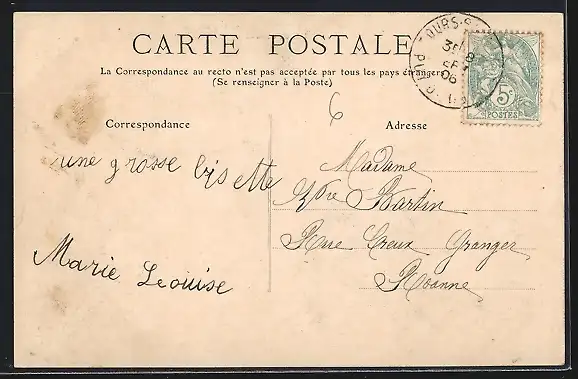 CARTE POSTALE
La Correspondance au recto n'est pas acceptée par tous les pays étrangers
(Se renseigner à la Poste)
6
Correspondance
Adresse
5c
POSTES
une grosse bisette
Marie Leouise
Madame
Vve Bartin
Rue Creux Granger
Roanne